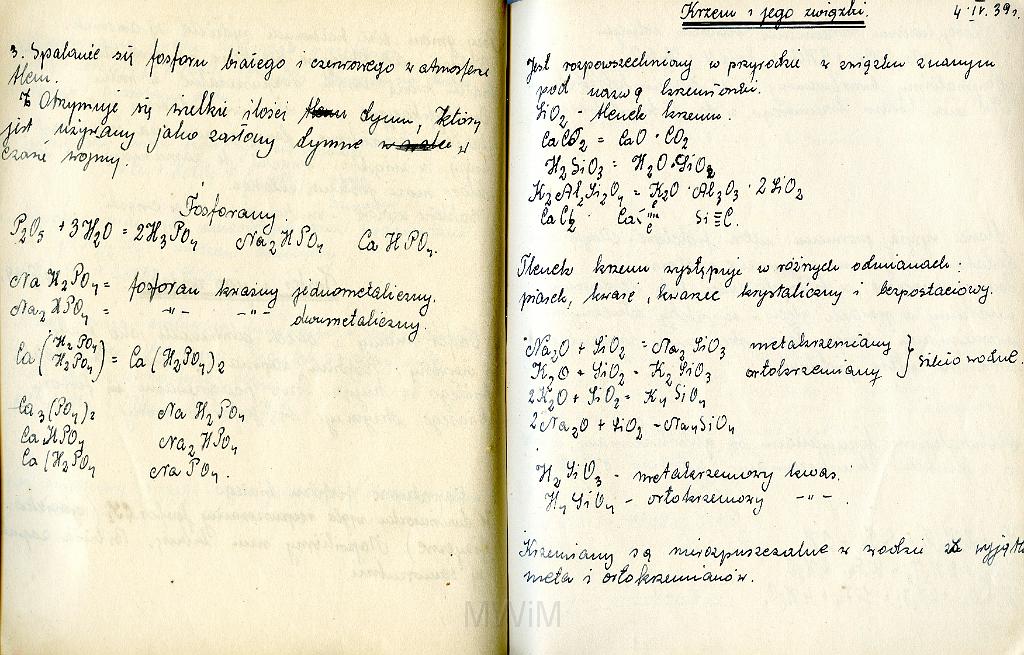 3. Spalanie się fosforu białego i czerwonego w atmosferze
tlenu.
Otrzymuje się wielkie ilości dymu, który
jest używany jako zasłony dymne w
czasie wojny.
Fosforany.
P2O5 + 3H2O = 2H3PO4 Na2HPO4 CaHPO4.
NaH2PO4 = fosforan kwaśny jednometaliczny.
Na2HPO4 = -"- -"- dwumetaliczny.
Ca(H2PO4 H2PO4) = Ca(H2PO4)2
Ca3(PO4)2 NaH2PO4
CaHPO4 Na2HPO4
Ca(H2PO4 NaPO4.
Krzem i jego związki.
4.IV.39 r.
Jest rozpowszechniony w przyrodzie w związku znanym
pod nazwą krzemionki.
SiO2 - tlenek krzemu.
CaCO2 = CaO · CO2
H2SiO3 = H2O·SiO2
K2Al2Si2O4 = K2O · Al2O3 · 2SiO2
CaC2 Si≡C.
Tlenek krzemu występuje w różnych odmianach:
piasek, kwarc krystaliczny i bezpostaciowy.
Na2O + SiO2 = Na2SiO3 metakrzemiany
K2O + SiO2 = K2SiO3 ortokrzemiany } szkło wodne.
2K2O + SiO2 = K4SiO4
2Na2O + SiO2 - Na4SiO4
H2SiO3 - metakrzemowy kwas.
H4SiO4 - ortokrzemowy -"- .
Krzemiany są nierozpuszczalne w wodzie za
meta i ortokrzemianów.
MWiM